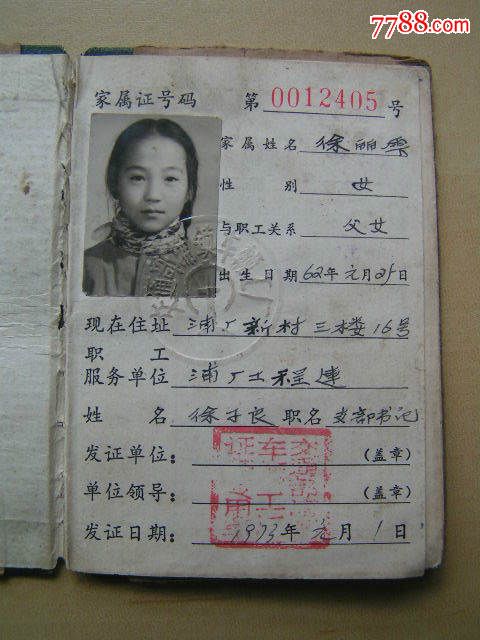 7788.com
家属证号码 第 0012405 号
家属姓名 徐丽霞
性别 女
与职工关系 父女
出生日期 62年元月25日
现在住址 浦厂新村三楼16号
职工
服务单位 浦厂工程连
姓名 徐子良 职名 支部书记
发证单位： (盖章)
单位领导： (盖章)
发证日期： 1973年元月1日